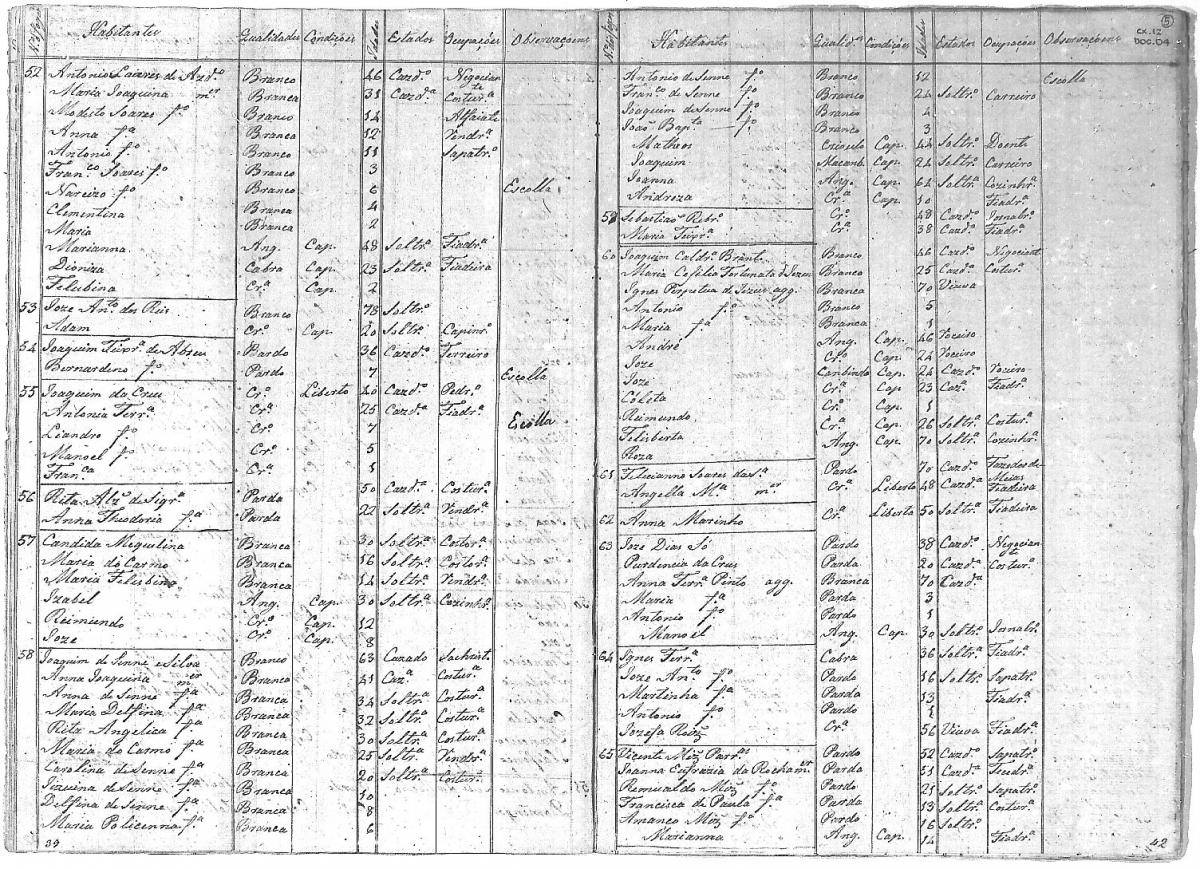 N.º dos Fogos Habitantes Qualidades Condições Idades Estados Ocupações Observaçoens
52 Antonio Soares de Azd.º Branco 46 Cazd.º Negociante
Maria Joaquina m.er Branca 31 Cazd.ª Costur.ª
Modesto Soares f.º Branco 14 Alfaiate
Anna f.ª Branca 12 Rendr.ª
Antonio f.º Branco 11 Sapatr.º
Fran.co Soares f.º Branco 3
Narcizo f.º Branco 6 Escolla
Clementina Branca 4
Maria Branca 2
Marianna Ang. Cap. 48 Soltr.ª Fiadr.ª
Dioniza Cabra Cap. 23 Soltr.ª Fiadeira
Felisbina Cr.ª Cap. 2
53 Joze Ant.º dos Reis Branco 78 Soltr.º
Adam Cr.º Cap. 20 Soltr.º Capinr.º
54 Joaquim Teixr.ª de Abreu Pardo 36 Cazd.º Ferreiro
Bernardino f.º Pardo 7 Escolla
55 Joaquim da Cruz Cr.º Liberto 40 Cazd.º Pedr.º
Antonia Ferr.ª Cr.ª 25 Cazd.ª Fiadr.ª
Liandro f.º Cr.º 7 Escolla
Manoel f.º Cr.º 5
Fran.ca Cr.ª 1
56 Rita Alz. de Sigr.ª Parda 50 Cazd.ª Costur.ª
Anna Theodoria f.ª Parda 22 Soltr.ª Rendr.ª
57 Candida Miquilina Branca 30 Soltr.ª Costor.ª
Maria do Carmo Branca 16 Soltr.ª Costor.ª
Maria Felisbina Branca 14 Soltr.ª Rendr.ª
Izabel Ang. Cap. 30 Soltr.ª Cozinhr.ª
Reimundo Cr.º Cap. 12
Joze Cr.º Cap. 8
58 Joaquim de Senne e Silva Branco 63 Cazado Sachrist.
Anna Joaquina m.er Branca 41 Caz.ª Costur.ª
Anna de Senne f.ª Branca 34 Soltr.ª Costur.ª
Maria Delfina f.ª Branca 32 Soltr.ª Costur.ª
Rita Angelica f.ª Branca 30 Soltr.ª Costur.ª
Maria do Carmo f.ª Branca 25 Soltr.ª Rendr.ª
Carolina de Senne f.ª Branca 20 Soltr.ª Costur.ª
Jezuina de Senne f.ª Branca 10
Delfina de Senne f.ª Branca 8
Maria Policenna f.ª Branca 6
39
5
CX.12
DOC.04
N.º dos Fogos Habitantes Qualid.es Condições Idades Estados Ocupações Observaçoens
Antonio de Senne f.º Branco 12 Escolla
Fran.co de Senne f.º Branco 24 Soltr.º Carreiro
Joaquim de Senne f.º Branco 4
João Bap.ta f.º Branco 3
Matheos Crioulo Cap. 44 Soltr.º Doente
Joaquim Mocamb. Cap. 24 Soltr.º Carreiro
Joanna Ang. Cap. 64 Soltr.ª Cozinhr.ª
Andreza Cr.ª Cap. 10 Fiadr.ª
59 Sebastião Ribr.º Cr.º 48 Cazd.º Jornalr.º
Maria Teixr.ª Cr.ª 38 Cazd.ª Fiadr.ª
60 Joaquim Caldr.ª Brant. Branco 46 Cazd.º Negociant
Maria Cefilia Fortunata d Jezus Branca 25 Cazd.ª Costur.ª
Ignes Perpetua de Jezus agg. Branca 70 Viuva
Antonio f.º Branco 5
Maria f.ª Branca 1
André Ang. Cap. 46 Roceiro
Joze Cr.º Cap. 24 Roceiro
Joze Canbinda Cap. 24 Cazd.º Roceiro
Coleta Cr.ª Cap. 23 Caz.ª Fiadr.ª
Reimundo Cr.º Cap. 1
Felisberta Cr.ª Cap. 26 Soltr.ª Costur.ª
Roza Ang. Cap. 70 Soltr.ª Cozinhr.ª
61 Felicianno Soares da S.ª Pardo 70 Cazd.º Fazedor de Meias
Angella M.ª m.er Cr.ª Liberta 48 Cazd.ª Fiadeira
62 Anna Marinho Cr.ª Liberta 50 Soltr.ª Fiadeira
63 Joze Dias Só Pardo 38 Cazd.º Negociante
Purdencia da Crus Parda 20 Cazd.ª Costur.ª
Anna Ferr.ª Pinto agg. Branca 70 Cazd.ª
Maria f.ª Parda 3
Antonio f.º Pardo 1
Manoel Ang. Cap. 30 Soltr.º Jornalr.º
64 Ignes Ferr.ª Cabra 36 Soltr.ª Fiadr.ª
Joze An.to f.º Pardo 16 Soltr.º Sapatr.º
Martinha f.ª Parda 13 Fiadr.ª
Antonio f.º Pardo 1
Jozefa Roiz Cr.ª 56 Viuva Fiadr.ª
65 Vicente Miz Parr.as Pardo 52 Cazd.º Sapatr.º
Joanna Eufrazia da Rocha m.er Parda 51 Cazd.ª Tecedr.ª
Romualdo Miz f.º Pardo 21 Soltr.º Sapatr.º
Francisca de Paula f.ª Parda 13 Soltr.ª Costur.ª
Amanco Miz f.º Pardo 16 Soltr.º
Marianna Ang. Cap. 14 Fiadr.ª
42